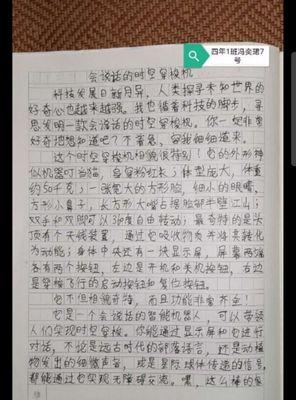 四年1班冯奕珺7
号
会说话的时空穿梭机
科技发展日新月异，人类探寻未知世界的
好奇心也越来越强。我也循着科技的脚步，寻
思发明一款会说话的时空穿梭机，你一定非常
好奇想想知道吧？不着急，容我细细道来。
这个时空穿梭机相貌很特别！它的外形神
似机器叮当猫，身穿粉红长；体型庞大，体重
约50千克；一张宽大的方形脸，细小的眼睛，
方形小鼻子，长方形大嘴占据脸部半壁江山；
双手和双脚可以360度自由转动；最奇特的是头
顶有个天线装置，通过它吸收物质并将其转化
为动能；身体中央还有一块显示屏，屏幕两端
各有两个按钮，左边是开机和关机按钮，右边
是穿梭飞行的启动按钮和复位按钮。
它不但相貌奇特，而且功能非常齐全！
它是一个会说话的智能机器人，可以带领
人们实现时空穿梭。你能通过显示屏和它进行
对话，不论是远古时代的部落语言，还是动植
物发出的细微声音，或是星际球体传递的信号，
都能通过它实现无障碍交流。嘿，这么棒的发